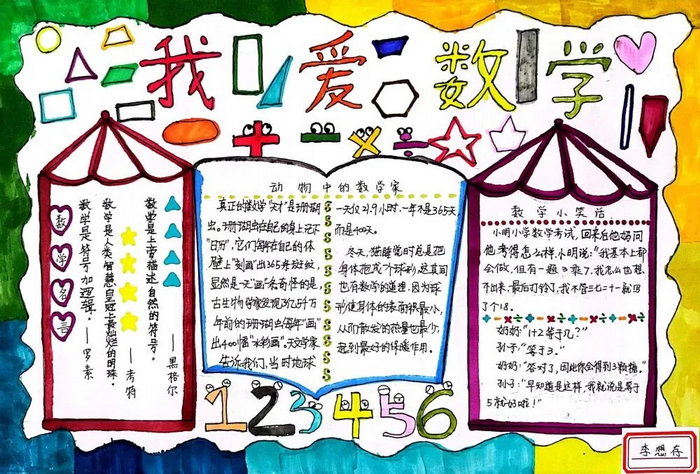 我爱数学
数学名言
数学是符号加逻辑。——罗素
数学是人类智慧皇冠上最灿烂的明珠。——考特
数学是上帝描述自然的符号。——黑格尔
动物中的数学家
真正的数学"天才"是珊瑚
虫。珊瑚虫在自己的身上记下
"日历",它们每年在自己的体
壁上"刻画"出365条斑纹,
显然是一天"画"一条。奇怪的是,
古生物学家发现3亿5千万
年前的珊瑚虫每年"画"
出400幅"水彩画"。天文学家
告诉我们,当时地球
一天仅21.9小时,一年不是365天,
而是400天。
冬天,猫睡觉时总是把
身体抱成个球形,这其间
也有数学的道理,因为球
形使身体的表面积最小,
从而散发的热量也最少,
起到最好的保暖作用。
数学小笑话
小明小学数学考试,回来后他妈问
他考得怎么样,小明说:"我基本上都
会做,但有一题3乘7,我怎么也想
不出来,最后打铃了,我不管三七二十一就回
了个18。
奶奶:"1+2等于几?"
孙子:"等于3。"
奶奶:"答对了,因此你会得到3颗糖。"
孙子:"早知道是这样,我就说是等于
5就好啦!"
123456
李想存